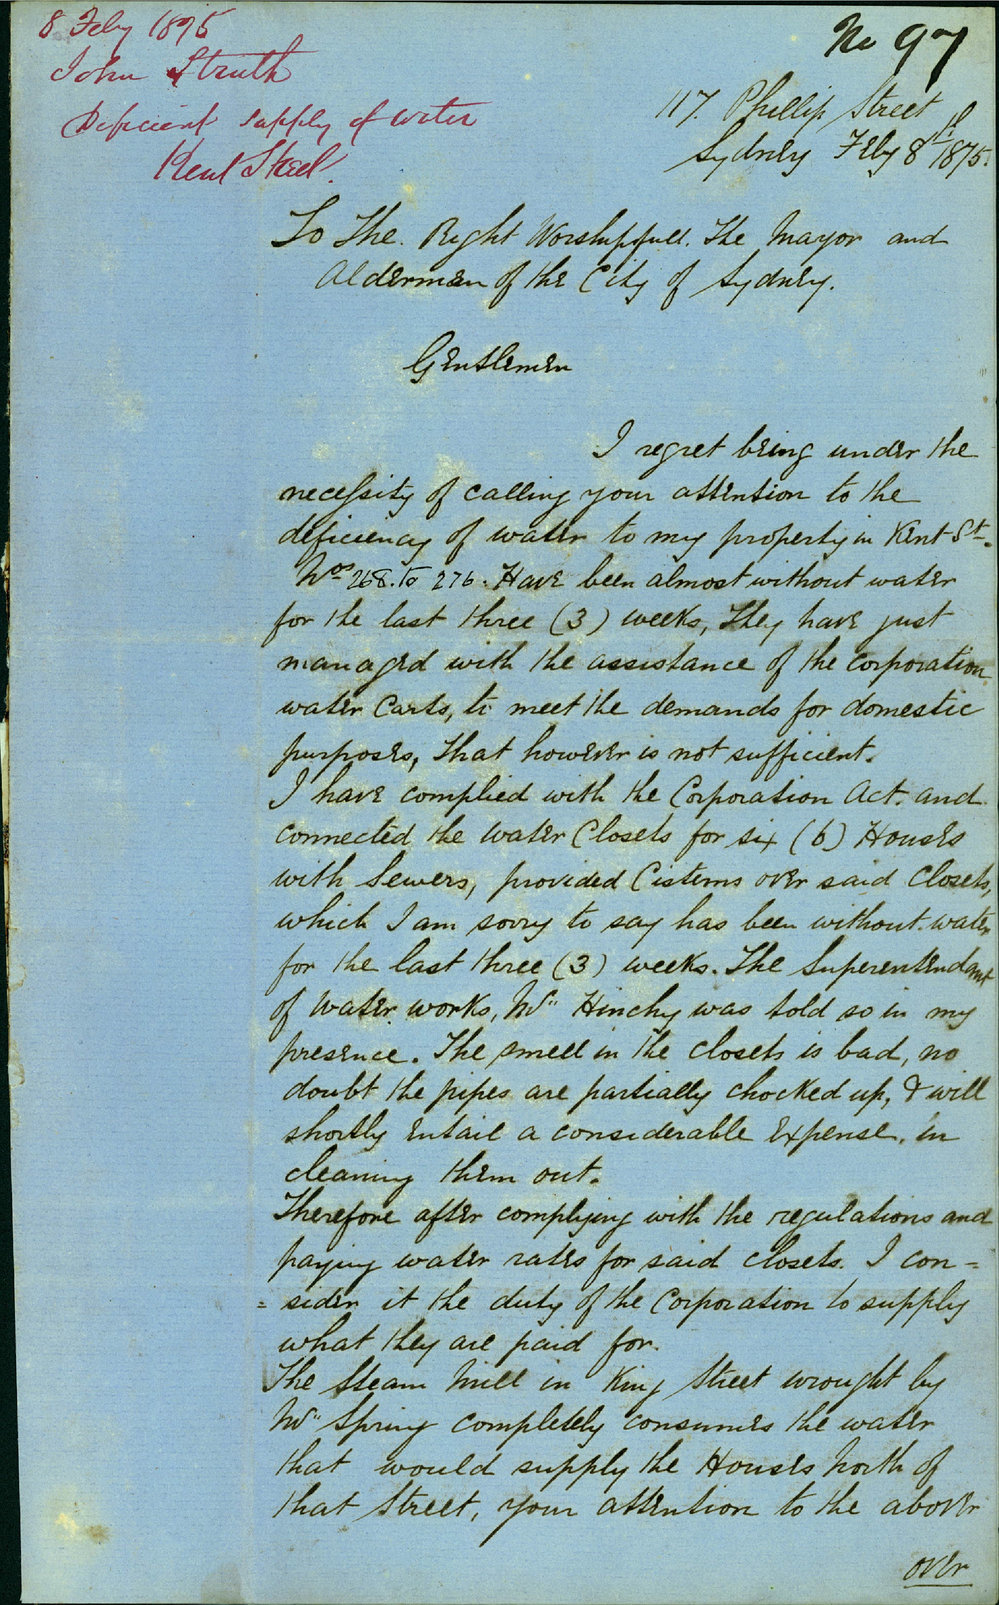 8 Feby 1875
John Struth
Deficient supply of water
Kent Street.
No 97
117. Phillip Street
Sydney Feby 8th 1875.
To The. Right Worshipfull. The Mayor and
Aldermen of the City of Sydney.
Gentlemen
I regret being under the
necessity of calling your attention to the
deficiency of water to my property in Kent St.
Nos 268. to 276. Have been almost without water
for the last three (3) weeks, They have just
managed with the assistance of the corporation
water Carts, to meet the demands for domestic
purposes, That however is not sufficient.
I have complied with the Corporation Act. and
connected the Water Closets for six (6) Houses
with Sewers, provided Cisterns over said Closets,
which I am sorry to say has been without water
for the last three (3) weeks. The Superentendant
of Water works, Mr Hinchy was told so in my
presence. The smell in the closets is bad, no
doubt the pipes are partially chocked up, & will
shortly entail a considerable expense, in
cleaning them out.
Therefore after complying with the regulations and
paying water rates for said closets. I con=
=sider it the duty of the Corporation to supply
what they are paid for.
The Steam Mill in King Street wrought by
Mr Spring completely consumes the water
that would supply the Houses North of
that Street, your attention to the above
over